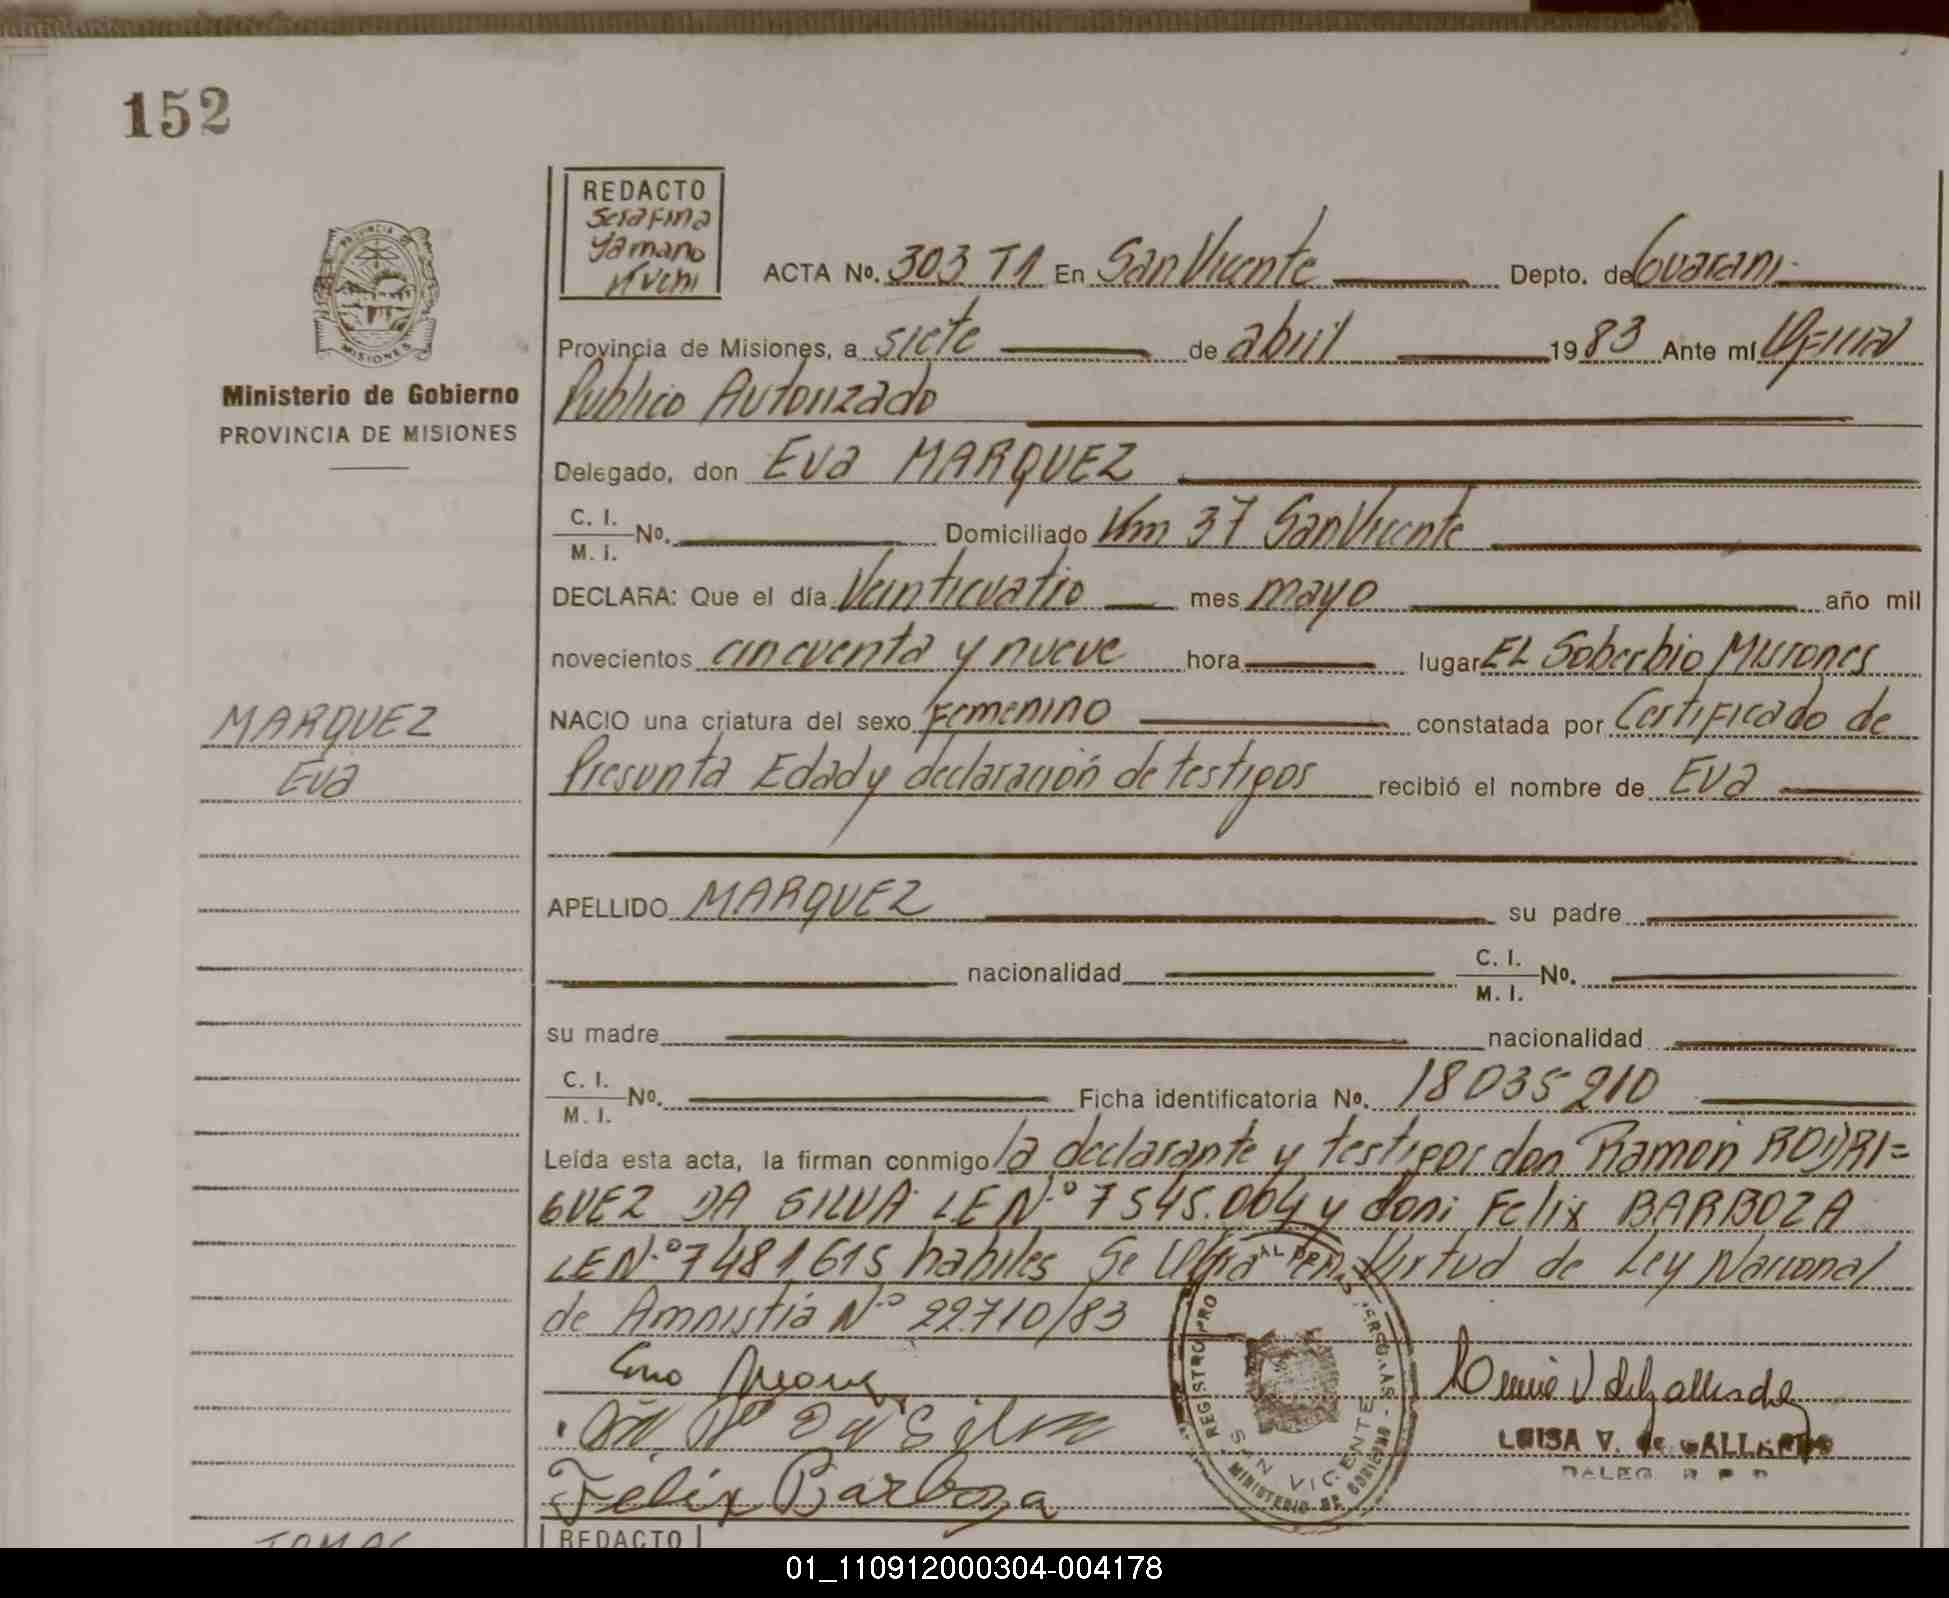 152
REDACTO
Serafina
Yamano
PROVINCIA DE
MISIONES
Ministerio de Gobierno
PROVINCIA DE MISIONES
ACTA No. 303 T1 En San Vicente Depto. de Guarani
Provincia de Misiones, a siete de abril 1983 Ante mí Oficial
Publico Autorizado
Delegado, don Eva MARQUEZ
C. I.
M. I. No. Domiciliado Km 37 San Vicente
DECLARA: Que el día Veinticuatro mes mayo año mil
novecientos cincuenta y nueve hora lugar EL Soberbio Misiones
MARQUEZ
NACIO una criatura del sexo Femenino constatada por Certificado de
Eva
Presunta Edad y declaración de testigos recibió el nombre de Eva
APELLIDO MARQUEZ su padre
nacionalidad C. I.
M. I. No.
su madre nacionalidad
C. I.
M. I. No. Ficha identificatoria No. 18035210
Leída esta acta, la firman conmigo la declarante y testigos don Ramon RODRI=
GUEZ DA SILVA LE N.º 7545.004 y don: Felix BARBOZA
LE N.º 7481615 habiles Se labra en Virtud de Ley Nacional
de Amnistia N.º 22.710/83
Da Silva
Felix Barboza
REGISTRO PRO AL DE LAS PERSONAS
SAN VICENTE
MINISTERIO DE GOBIERNO
LUISA V. de GALLARDO
REDACTO
01_110912000304-004178